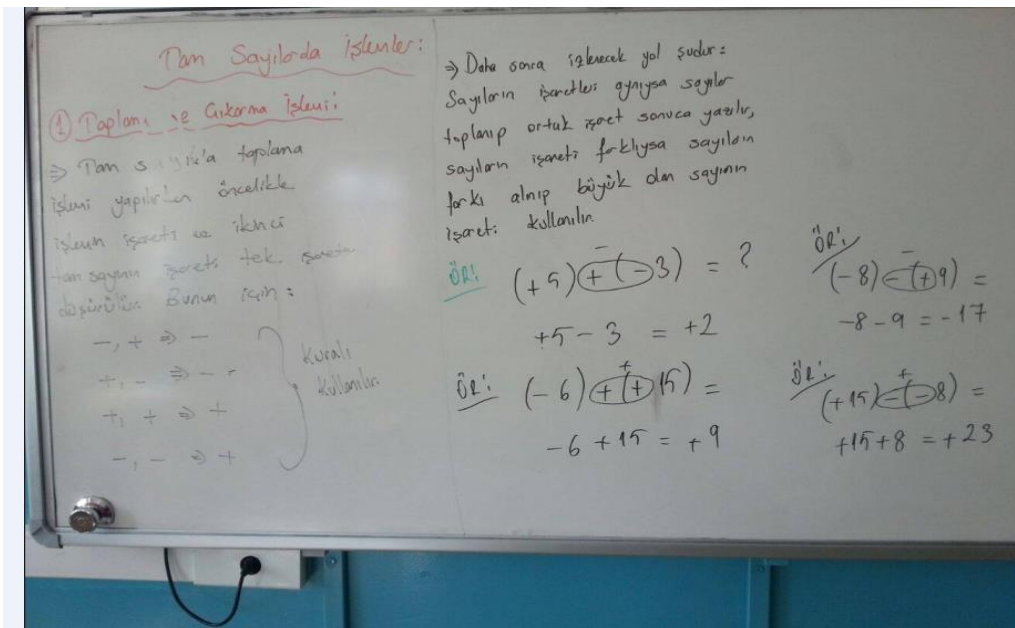 Tam Sayılarda İşlemler:
① Toplama ve Çıkarma İşlemi:
⇒ Tam sayılarla toplama
işlemi yapılırken öncelikle
işlemin işareti ve ikinci
tam sayının işareti tek işarete
düşürülür. Bunun için:
-, + ⇒ -
+, - ⇒ -
+, + ⇒ +
-, - ⇒ +
Kuralı
Kullanılır.
⇒ Daha sonra izlenecek yol şudur:
Sayıların işaretleri aynıysa sayılar
toplanıp ortak işaret sonuca yazılır,
sayıların işareti farklıysa sayıların
farkı alnıp büyük olan sayının
işareti kullanılır.
ÖR: (+5) + (-3) = ?
-
+5 - 3 = +2
ÖR: (-6) + (+15) =
+
-6 + 15 = +9
ÖR: (-8) - (+9) =
-
-8 - 9 = -17
ÖR: (+15) - (-8) =
+
+15 + 8 = +23